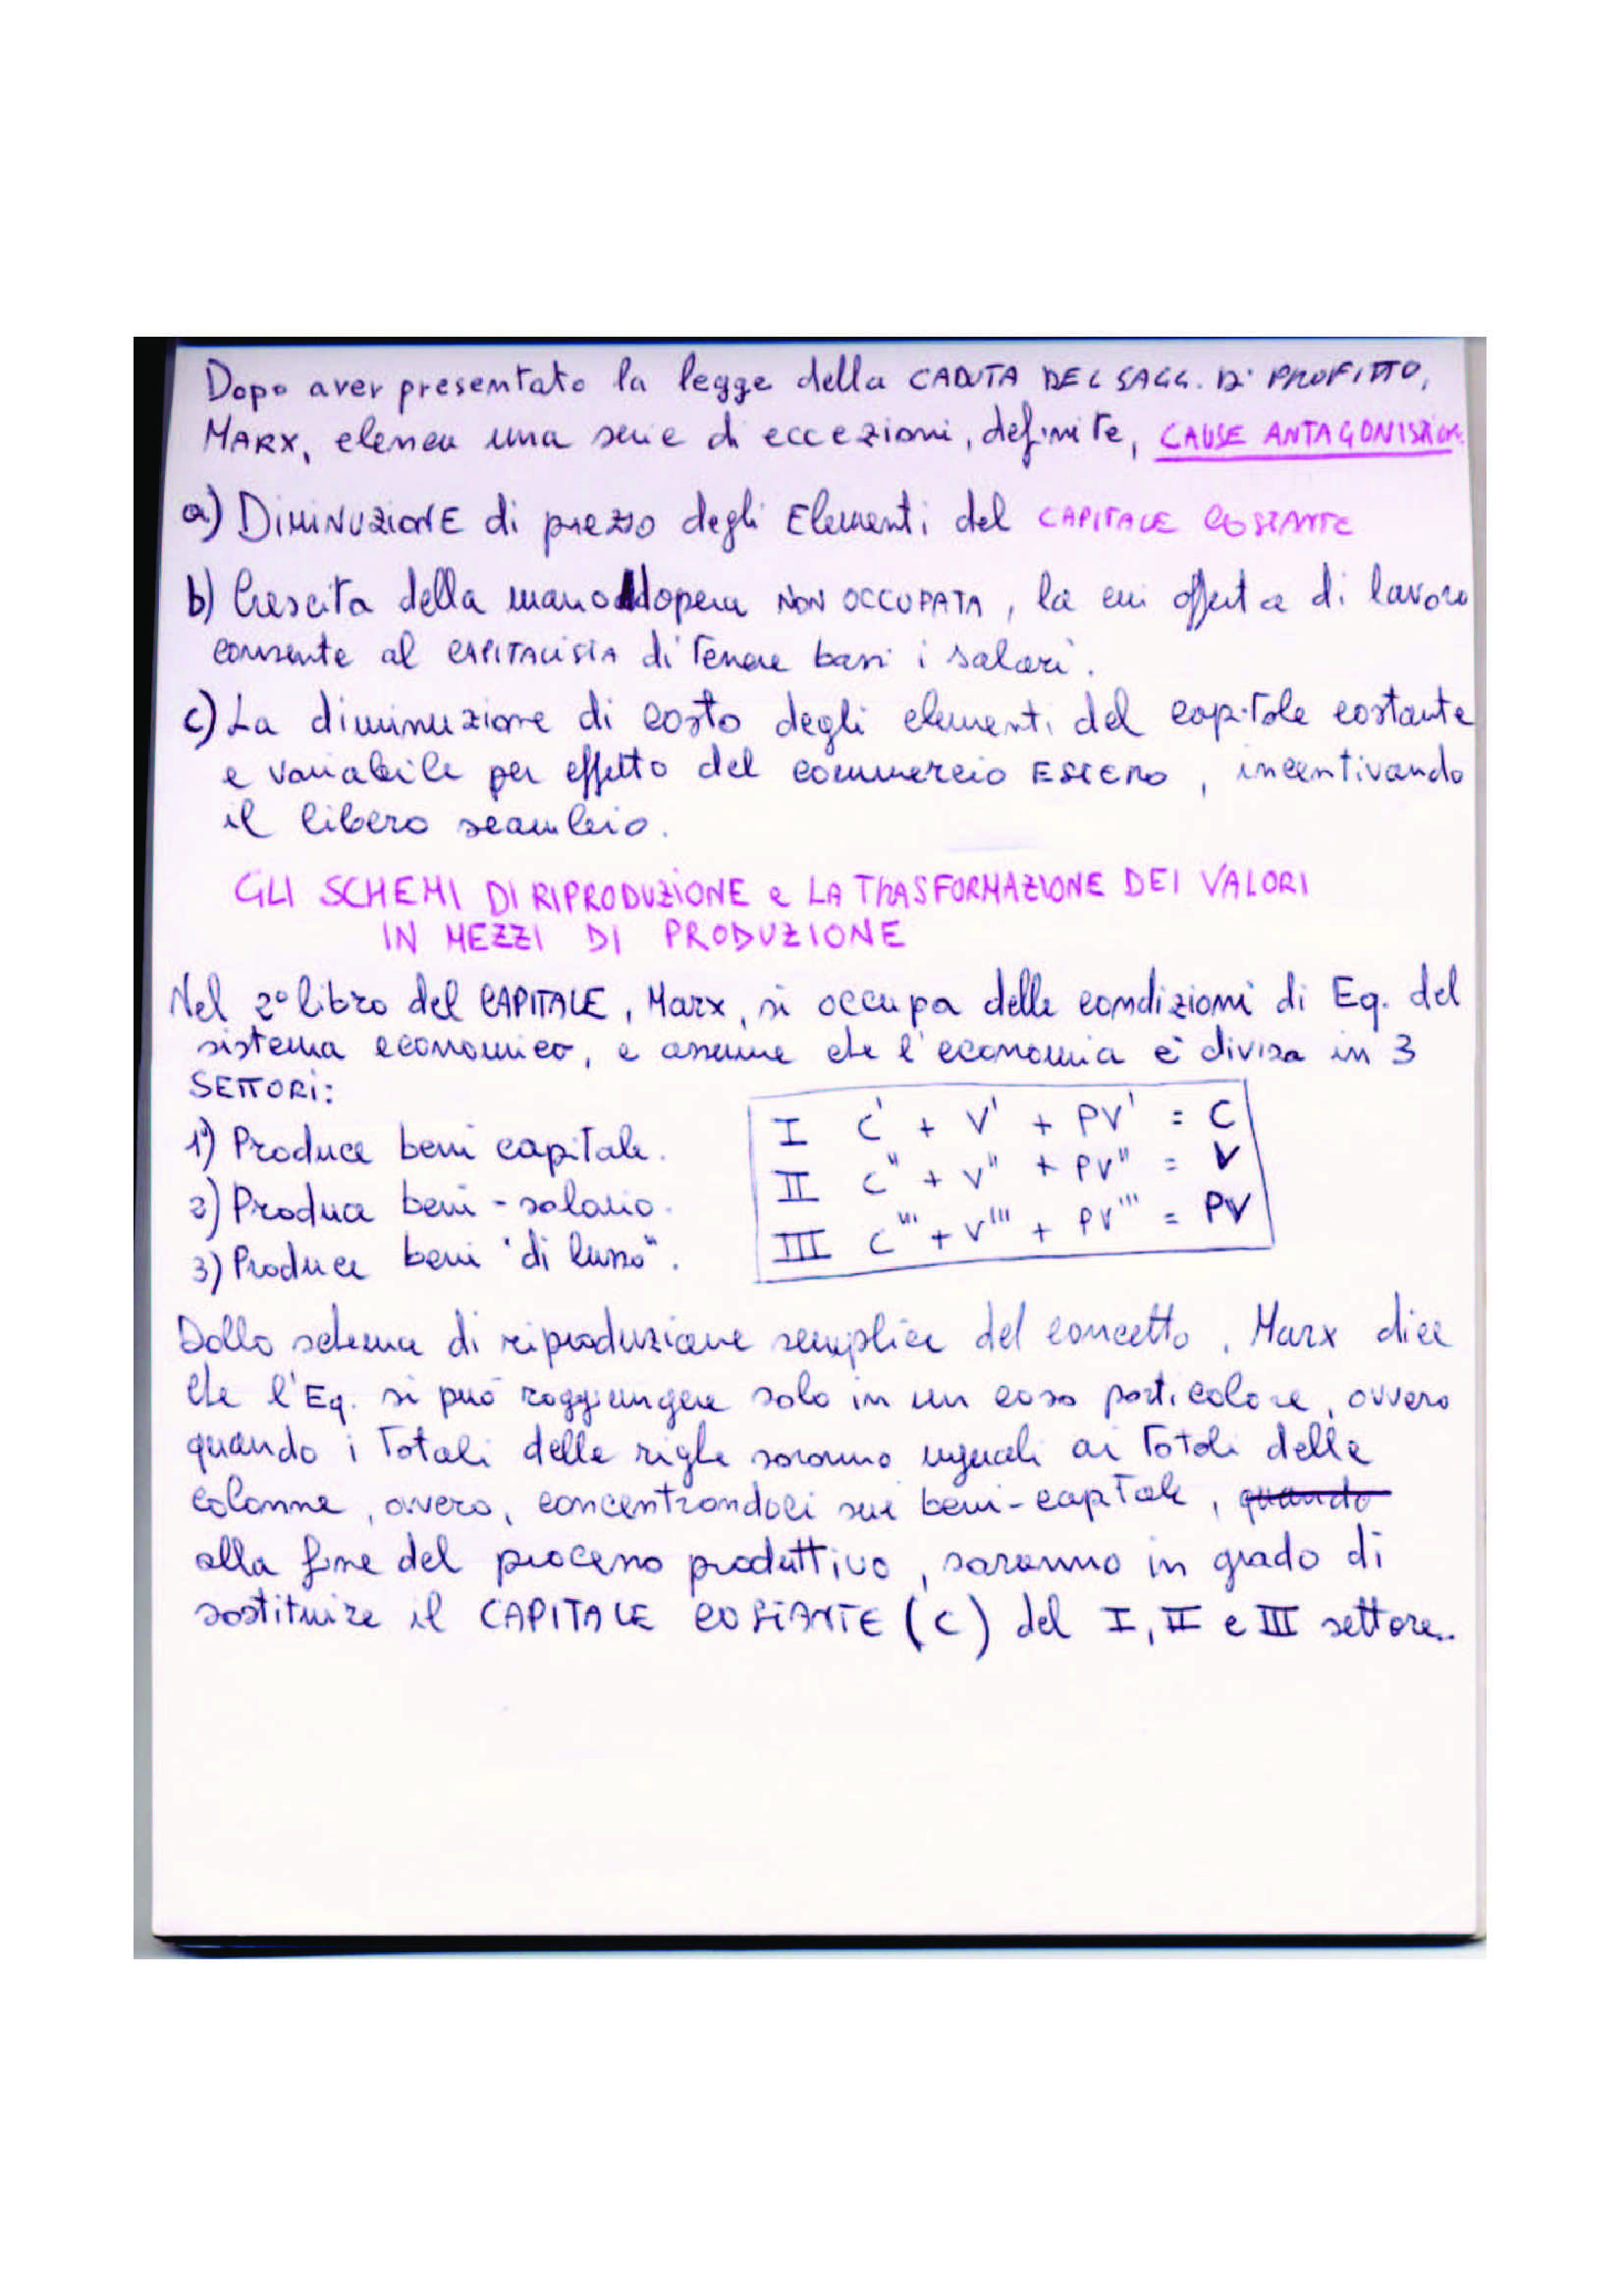 Dopo aver presentato la legge della CADUTA DEL SAGG. DI PROFITTO,
MARX, elenca una serie di eccezioni, definite, CAUSE ANTAGONISTICHE
a) DIMINUZIONE di prezzo degli Elementi del CAPITALE COSTANTE
b) Crescita della manodopera NON OCCUPATA, la cui offerta di lavoro
consente al CAPITALISTA di tenere bassi i salari.
c) La diminuzione di costo degli elementi del capitale costante
e variabile per effetto del commercio ESTERO, incentivando
il libero scambio.
GLI SCHEMI DI RIPRODUZIONE e LA TRASFORMAZIONE DEI VALORI
IN MEZZI DI PRODUZIONE
Nel 2° libro del CAPITALE, Marx, si occupa delle condizioni di Eq. del
sistema economico, e assume che l'economia è divisa in 3
SETTORI:
1) Produce beni capitale.
2) Produce beni-salario.
3) Produce beni "di lusso".
I C' + V' + PV' = C
II C'' + V'' + PV'' = V
III C''' + V''' + PV''' = PV
Dallo schema di riproduzione semplice del concetto, Marx dice
che l'Eq. si può raggiungere solo in un caso particolare, ovvero
quando i totali delle righe saranno uguali ai totali delle
colonne, ovvero, concentrandoci sui beni-capitale, quando
alla fine del processo produttivo, saranno in grado di
sostituire il CAPITALE COSTANTE (C) del I, II e III settore.